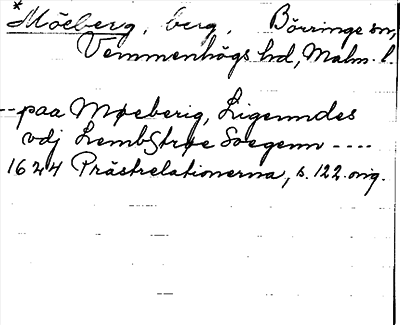 *Möeberg, berg, Börringe sn,
Vemmenhögs hd, Malm. l.
--paa Møeberig, Ligenndes
vdj Lembstrøe Soegenn ----
1624 Prästrelationerna, s. 122. orig.